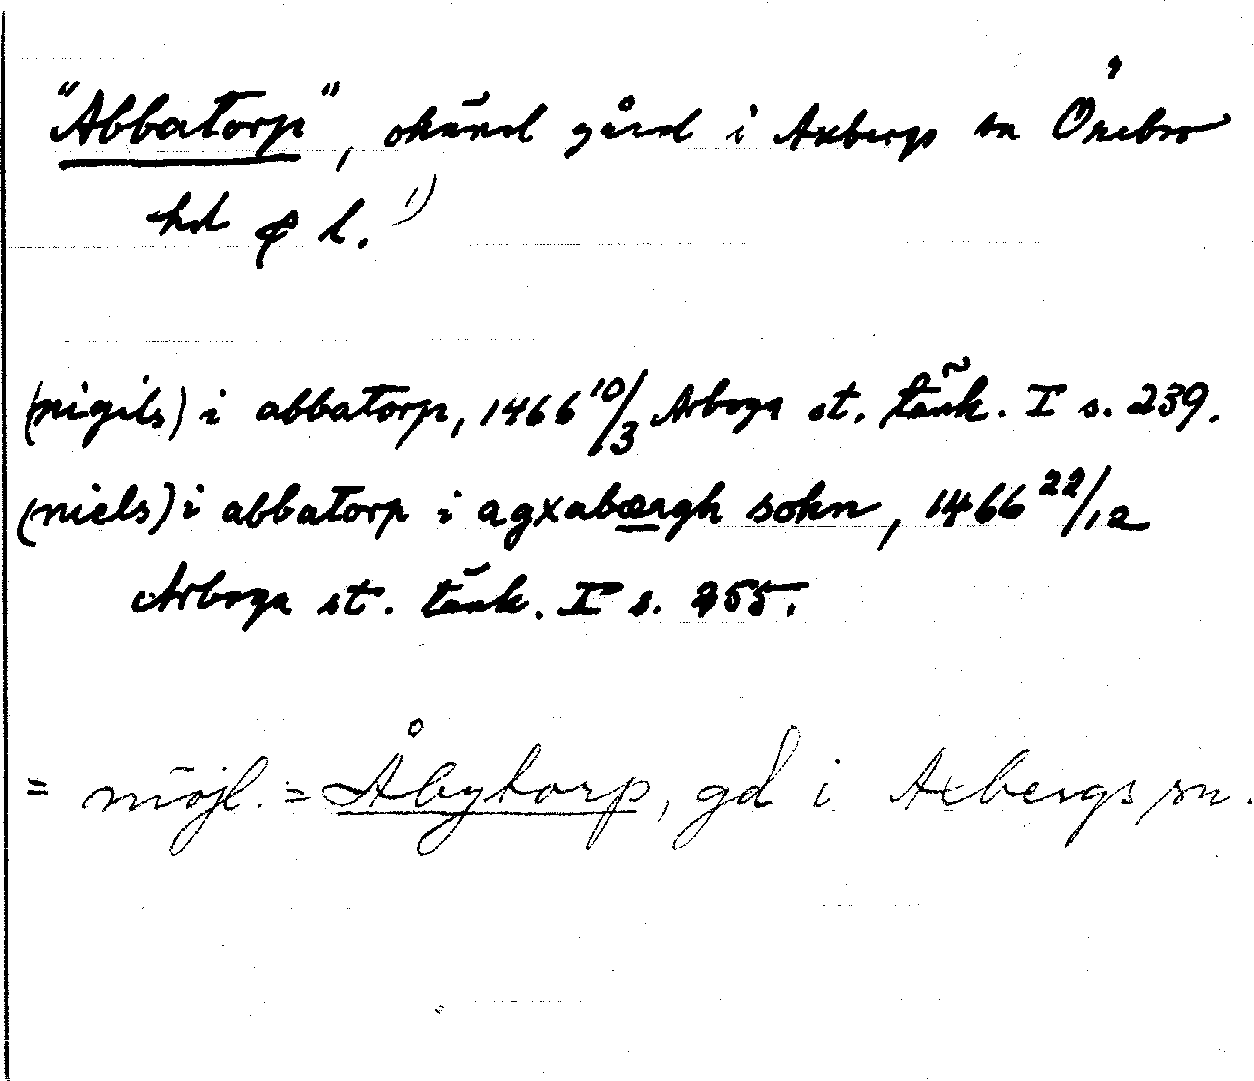 "Abbatorp", okänd gård i Axbergs sn Örebro
hd Ö l. 1)
(nigils) i abbatorp, 1466 10/3 Arboga st. tänk. I s. 239.
(niels) i abbatorp i agxabærgh sokn, 1466 22/12
Arboga st. tänk. I s. 255.
= möjl. = Åbytorp, gd i Axbergs sn.